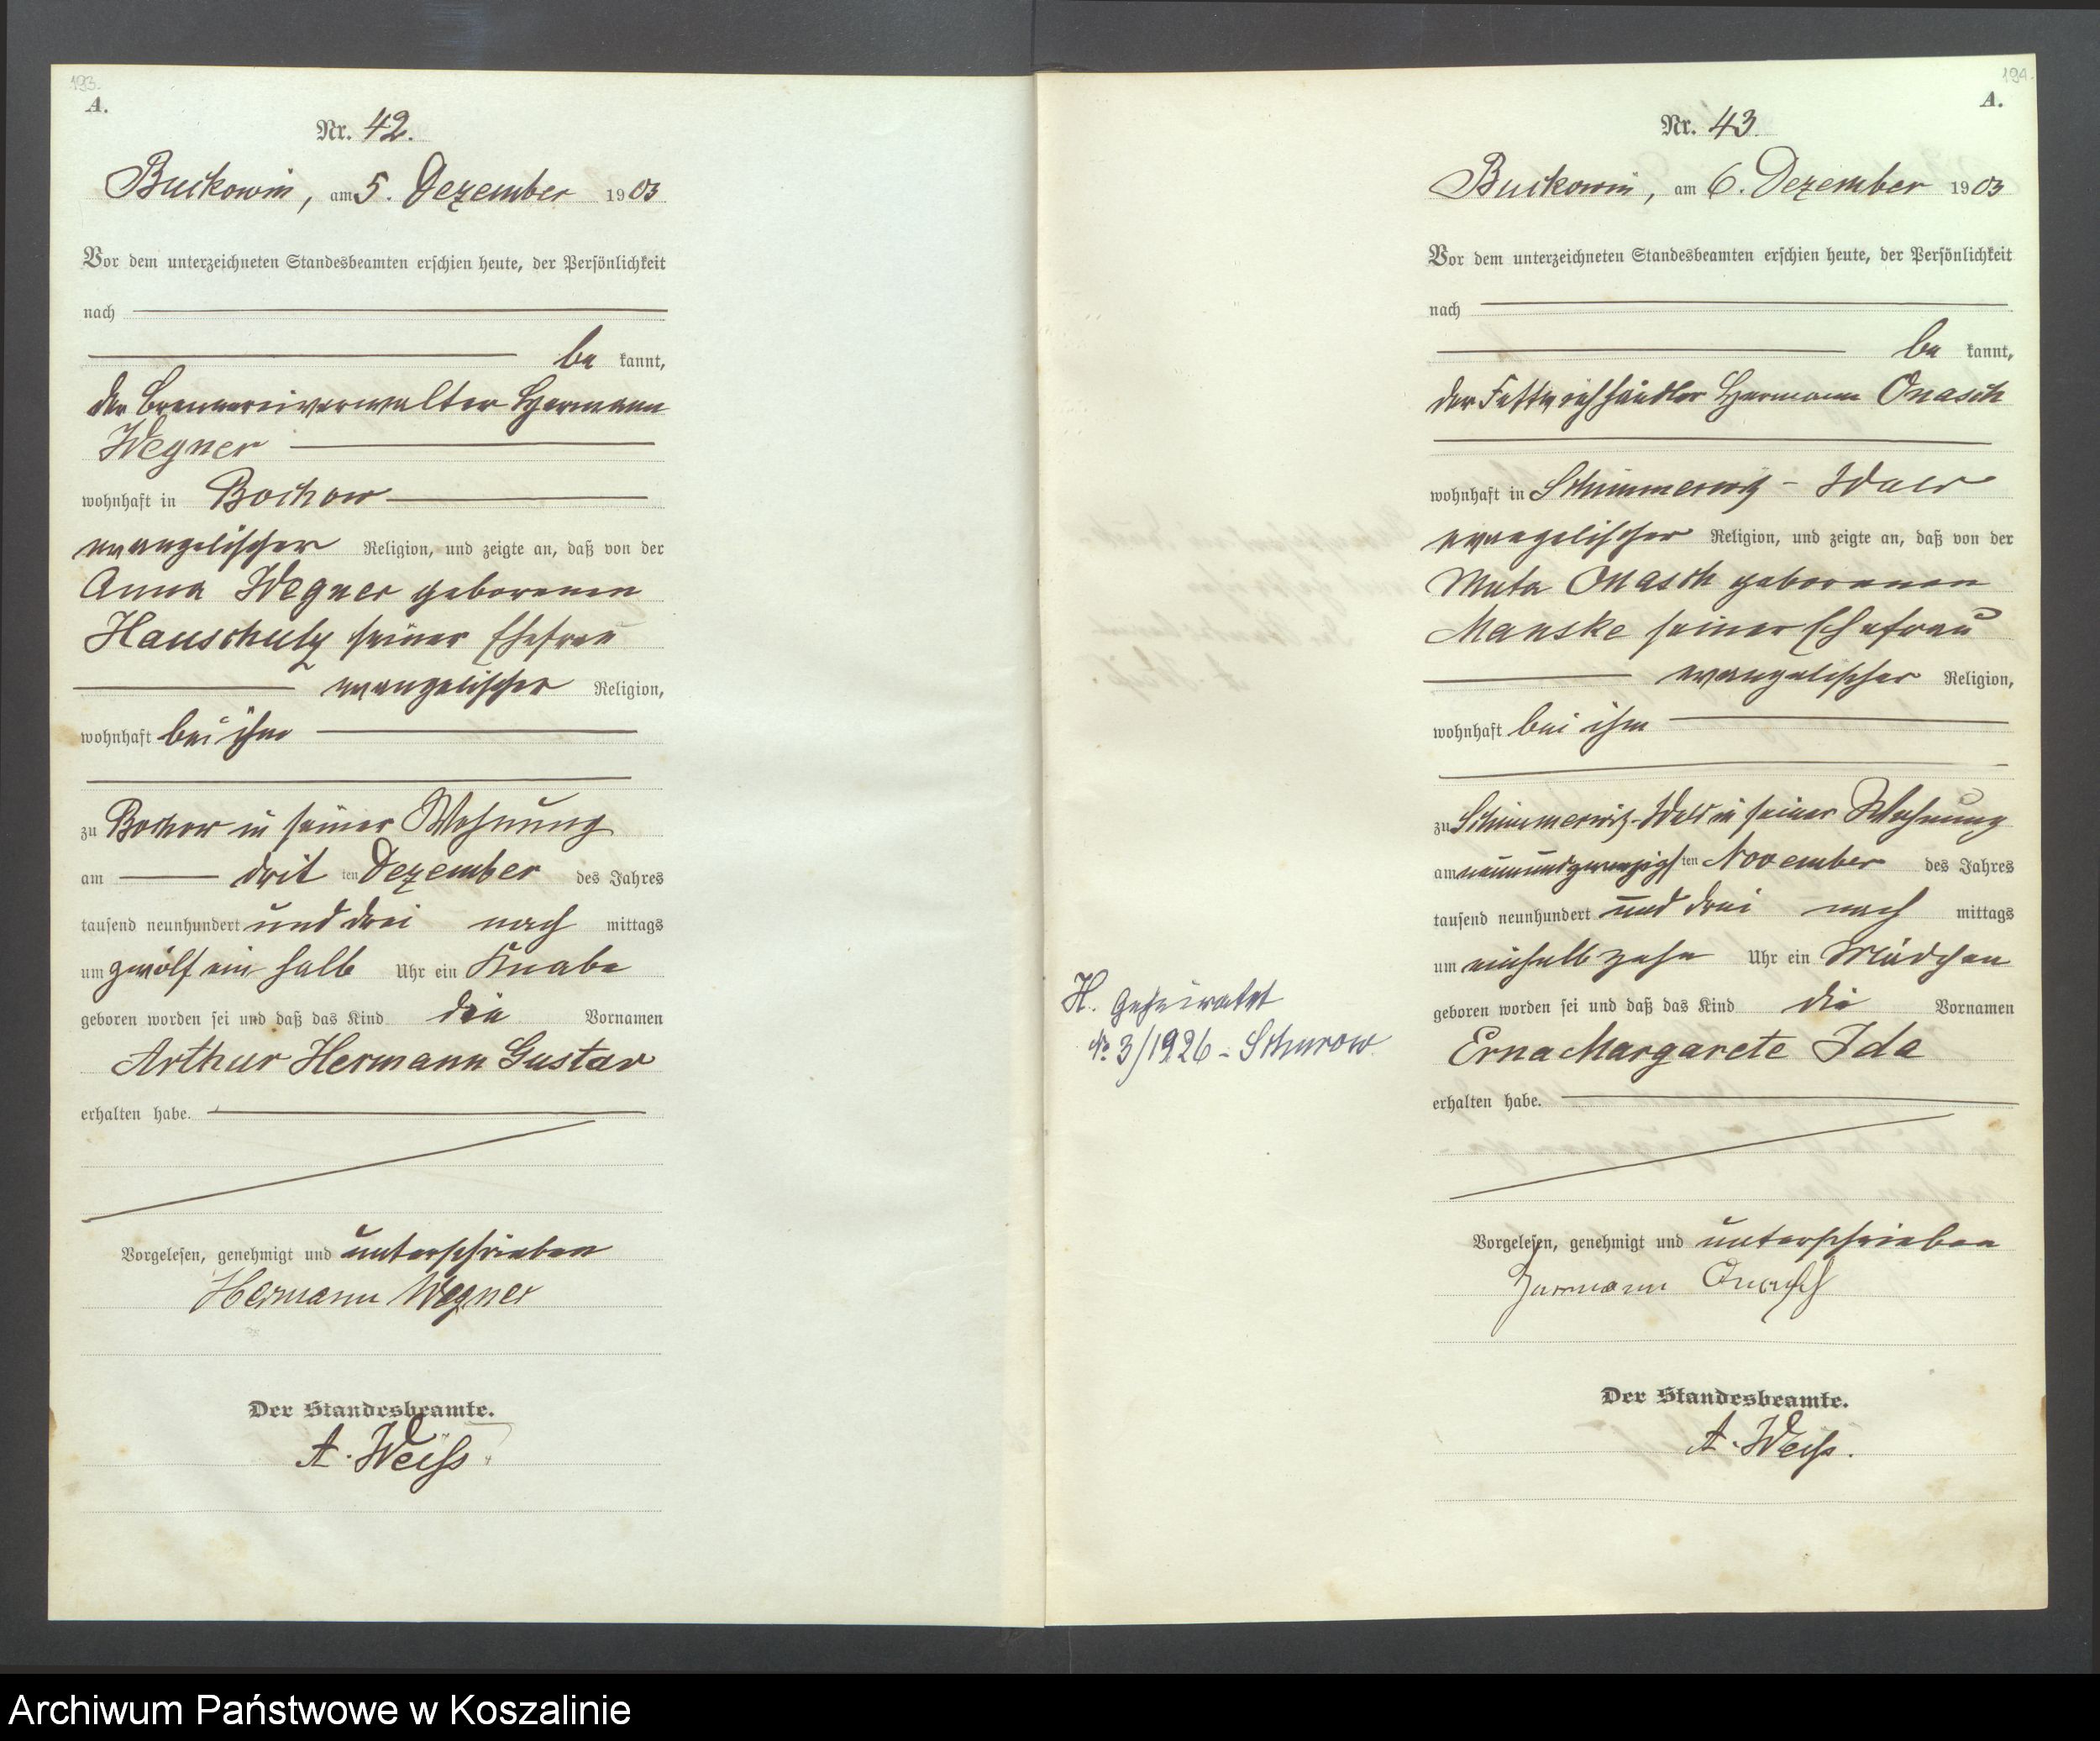 193.
A.
Nr. 42.
Buckowin, am 5. Dezember 1903
Vor dem unterzeichneten Standesbeamten erschien heute, der Persönlichkeit
nach
be kannt,
der Brennereiverwalter Hermann
Wegner
wohnhaft in Bochow
evangelischer Religion, und zeigte an, daß von der
Anna Wegner geborenen
Hauschulz seiner Ehefrau
evangelischer Religion,
wohnhaft bei ihm
zu Bochow in seiner Wohnung
am dritten Dezember des Jahres
tausend neunhundert und drei nach mittags
um zwölf ein halb Uhr ein Knabe
geboren worden sei und daß das Kind die Vornamen
Arthur Hermann Gustav
erhalten habe.
Vorgelesen, genehmigt und unterschrieben
Hermann Wegner
Der Standesbeamte.
A. Weiß.
194.
A.
Nr. 43.
Buckowin, am 6. Dezember 1903
Vor dem unterzeichneten Standesbeamten erschien heute, der Persönlichkeit
nach
be kannt,
der Fettviehhändler Hermann Onasch
wohnhaft in Schimmerwitz-
evangelischer Religion, und zeigte an, daß von der
Meta Onasch geborenen
Manske seiner Ehefrau
evangelischer Religion,
wohnhaft bei ihm
zu Schimmerwitz- in seiner Wohnung
am neunundzwanzigsten November des Jahres
tausend neunhundert und drei nach mittags
um einhalb zehn Uhr ein Mädchen
geboren worden sei und daß das Kind die Vornamen
Erna Margarete Ida
erhalten habe.
Vorgelesen, genehmigt und unterschrieben
Hermann Onasch
Der Standesbeamte.
A. Weiß.
H. Geheiratet
No 3/1926 - Schurow
Archiwum Państwowe w Koszalinie